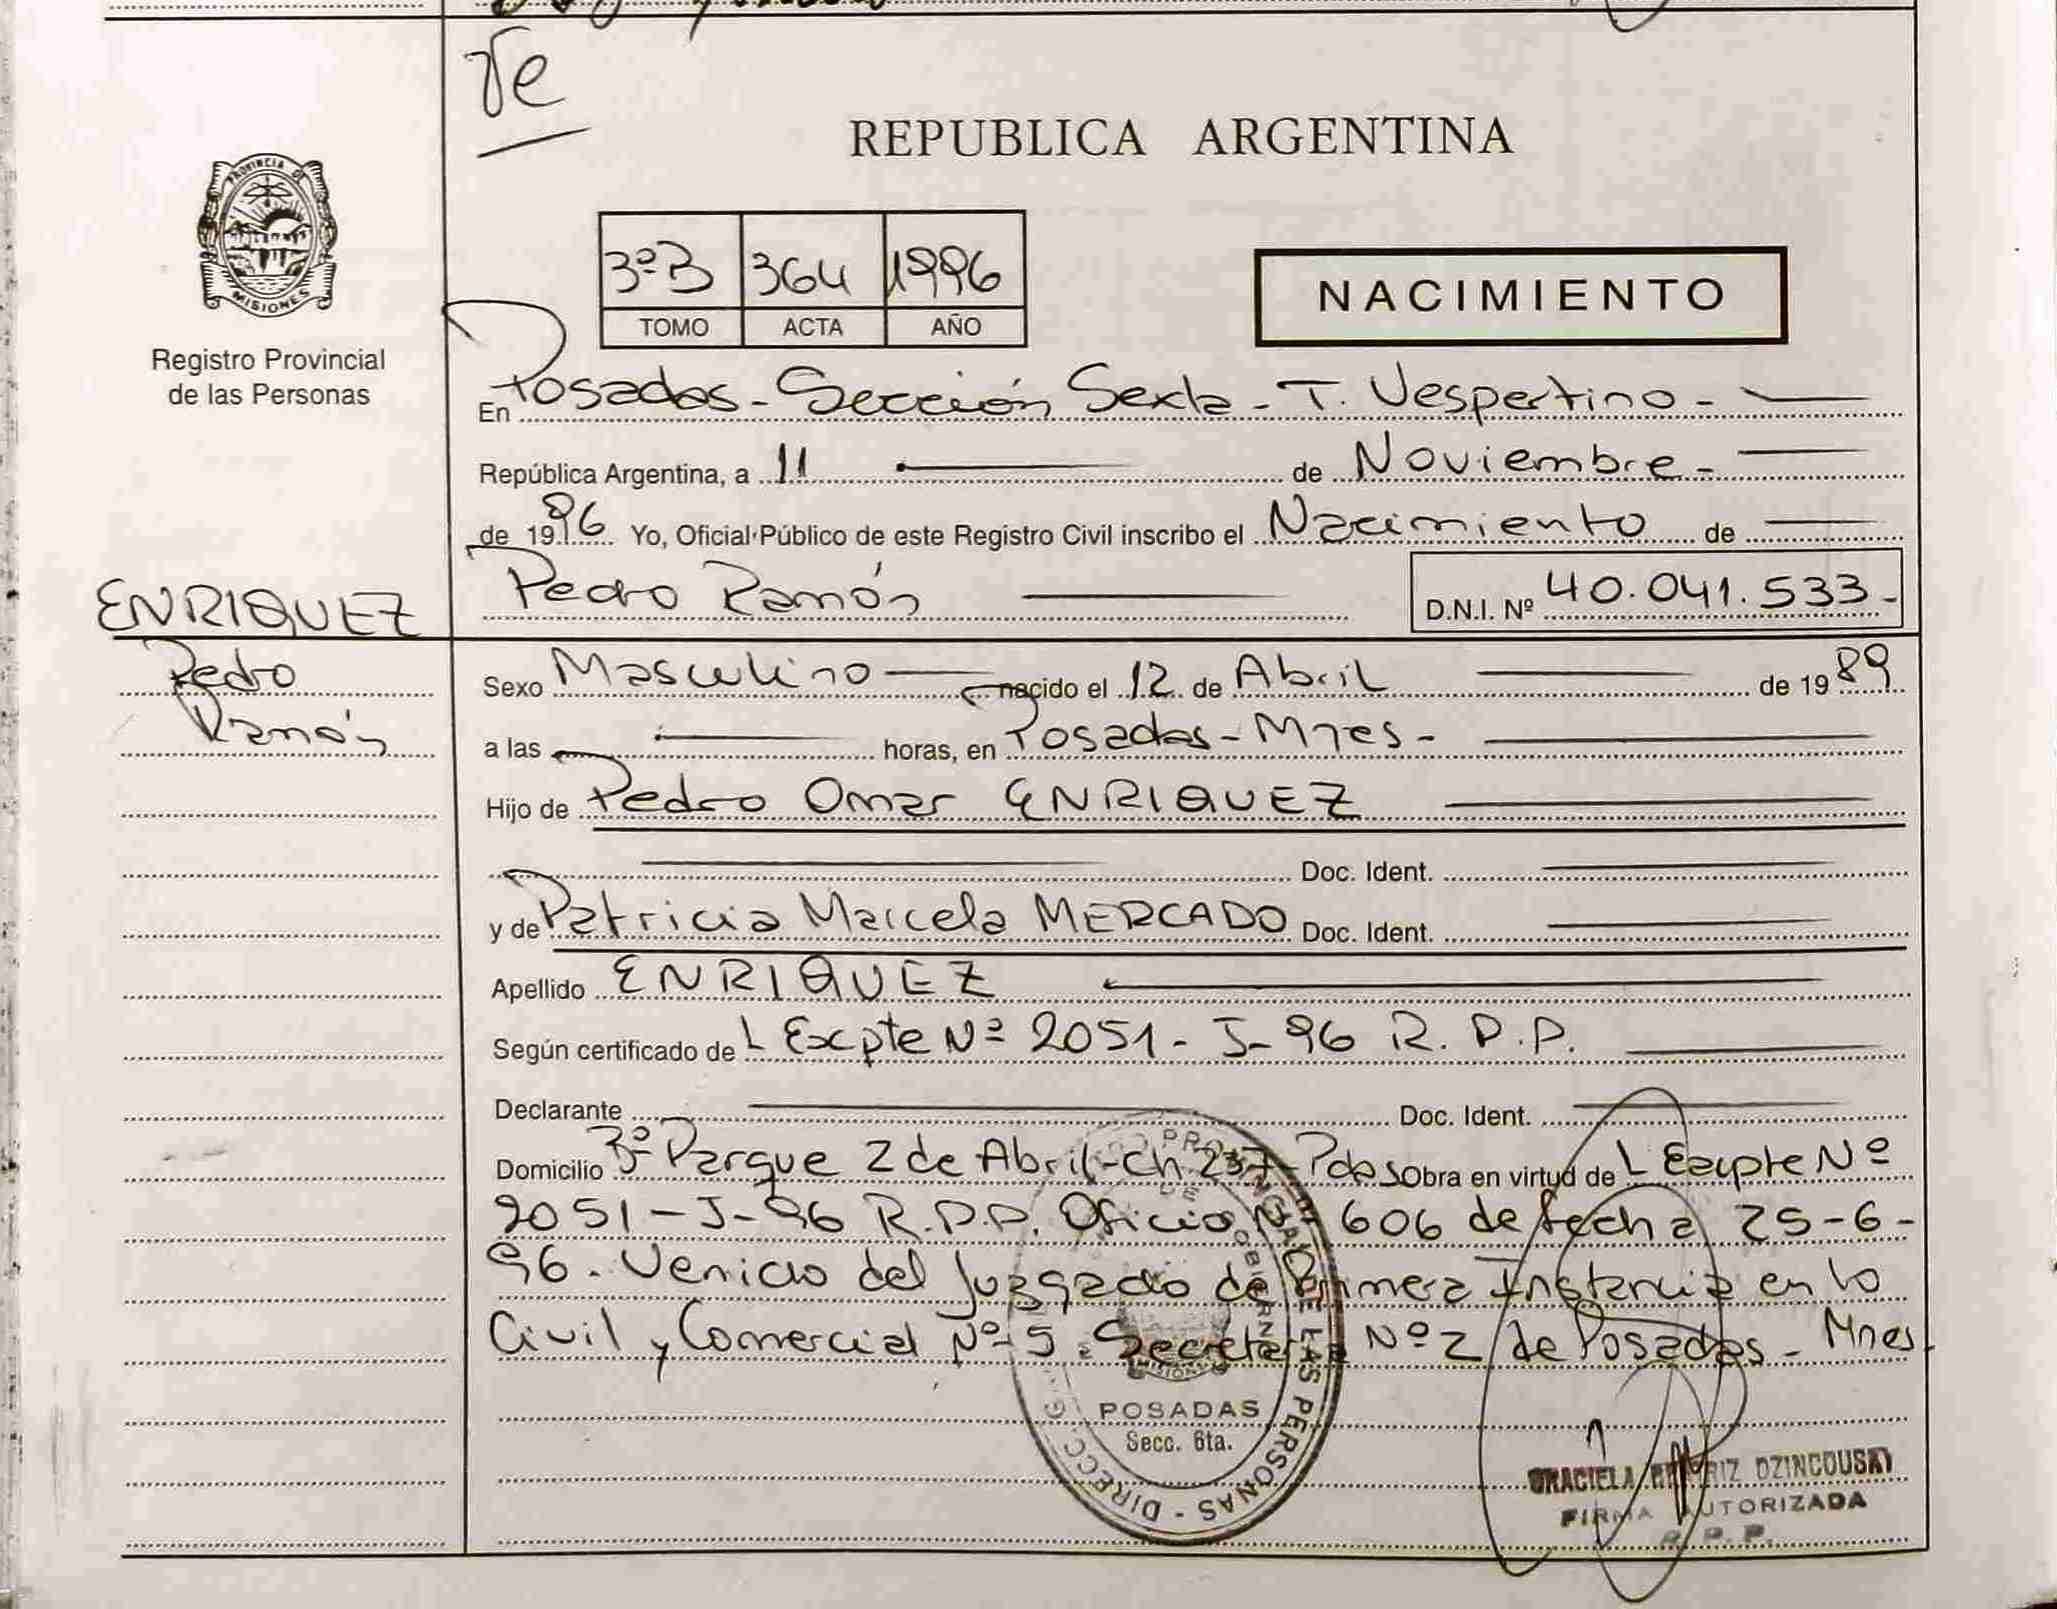 Te
REPUBLICA ARGENTINA
PROVINCIA DE
MISIONES
Registro Provincial
de las Personas
3º B 364 1996
TOMO ACTA AÑO
NACIMIENTO
En Posadas - Sección Sexta - T. Vespertino -
República Argentina, a 11 de Noviembre -
de 1996 Yo, Oficial Público de este Registro Civil inscribo el Nacimiento de
Pedro Ramón D.N.I. Nº 40.041.533 -
ENRIQUEZ
Pedro
Ramón
Sexo Masculino nacido el 12 de Abril de 1989
a las horas, en Posadas - Mnes -
Hijo de Pedro Omar ENRIQUEZ
Doc. Ident.
y de Patricia Marcela MERCADO Doc. Ident.
Apellido ENRIQUEZ
Según certificado de L Excpte Nº 2051 - J - 96 R.P.P.
Declarante Doc. Ident.
Domicilio 3º Parque 2 de Abril - Ch 237 - Pdas Obra en virtud de L Excpte Nº
2051 - J - 96 R.P.P. Oficio Nº 606 de fecha 25-6-
96. Venido del Juzgado de Primera Instancia en lo
Civil y Comercial Nº 5. Secretaria Nº 2 de Posadas - Mnes.
POSADAS
Secc. 6ta.
GRACIELA BEATRIZ DZINCOUSKI
FIRMA AUTORIZADA
R. P. P.